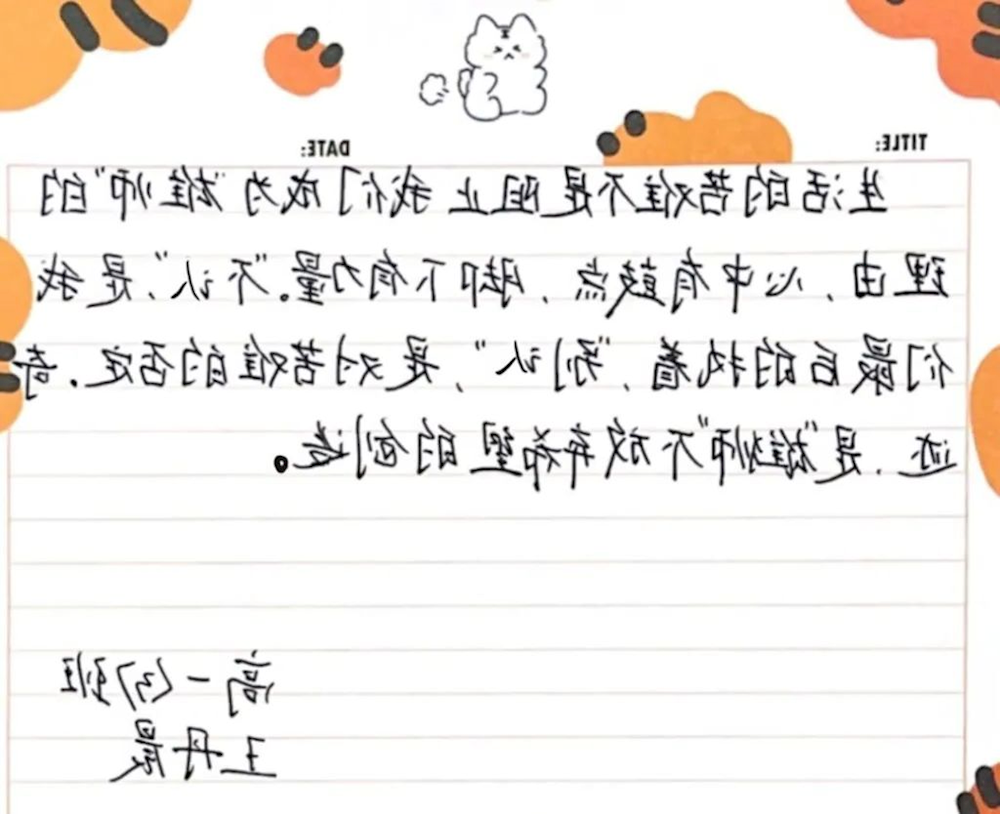 TITLE: DATE:
生活的苦难不是阻止我们成为“雄师”的
理由,心中有鼓点,脚下有力量。“不认”,是我
们最后的执着,“别认”,是对苦难的否定.奇
迹,是“雄师”不放弃希望的创造。
高一(3)班
王丹晨